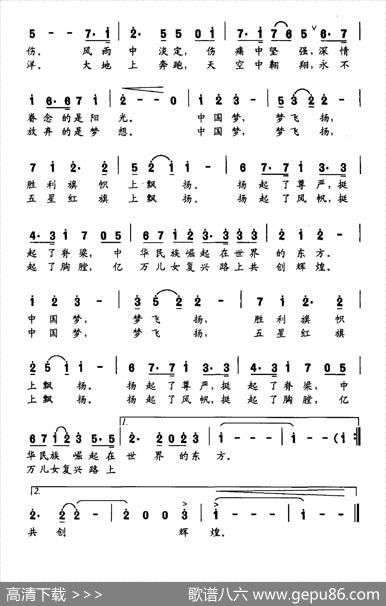 5 - - 7·i | 2· 5 5 0 5 | 7·i 7 6 5 6·7 |
伤。 风雨 中 淡定， 伤 痛中坚 强，深情
洋。 大地 上 奔跑， 天 空中翱 翔，永不
i 6·6 7 i | 2 - - 0 | i 2 3 - | 5 3 2 2 - |
眷念的是 阳 光。 中国梦， 梦飞 扬，
放弃的是 梦 想。 中国梦， 梦飞 扬，
7 i 2· 2 | 5 2 i i - | 6 7·7 i 3·3 |
胜利旗 帜 上飘扬。 扬 起了尊严，挺
五星红 旗 上飘扬。 扬 起了风帆，挺
4·3 i 7 0 5 | 6 7 i 2 3·3 3 3 | 2· 2 0 2 3 |
起了脊梁，中 华民族崛起在世界 的东方。
起了胸膛，亿 万儿女复兴路上共 创辉煌。
i 2 3 - | 3 5 2 2 - | 7 i 2· 2 |
中国梦， 梦飞 扬， 胜利旗 帜
中国梦， 梦飞 扬， 五星红 旗
2 5 i i - | 6 7·7 i 3·3 | 4·3 i 7 0 5 |
上飘扬。 扬 起了尊严，挺 起了脊梁，中
上飘扬。 扬 起了风帆，挺 起了胸膛，亿
1.
6 7 i 2 3 5·5 | 2· 2 0 2 3 | i - - - | i - - (i :||
华民族 崛起在 世 界的东 方。
万儿女 复兴路 上
2.
2· 2 - - | 2 0 0 3 | i - - - | i - - - ||
共 创 辉 煌。
高清下载 >>> 歌谱八六 www.gepu86.com